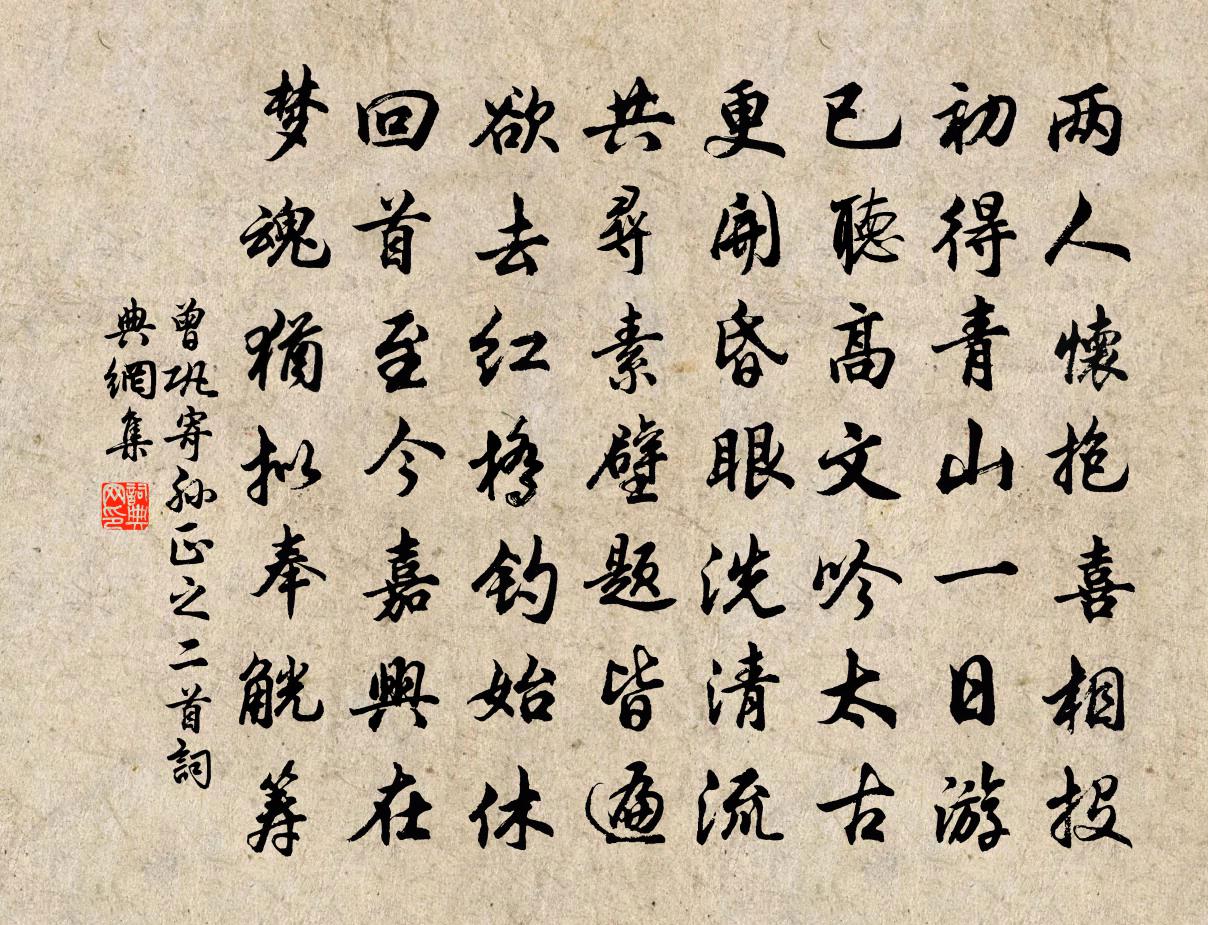 两人懷抱喜相投
初得青山一日游
已聽高文吟太古
更開昏眼洗清流
共尋素壁題皆遍
欲去红橋釣始休
回首至今嘉興在
梦魂猶拟奉觥筹
曾巩寄孙正之二首詞
典網集
詞典
网印